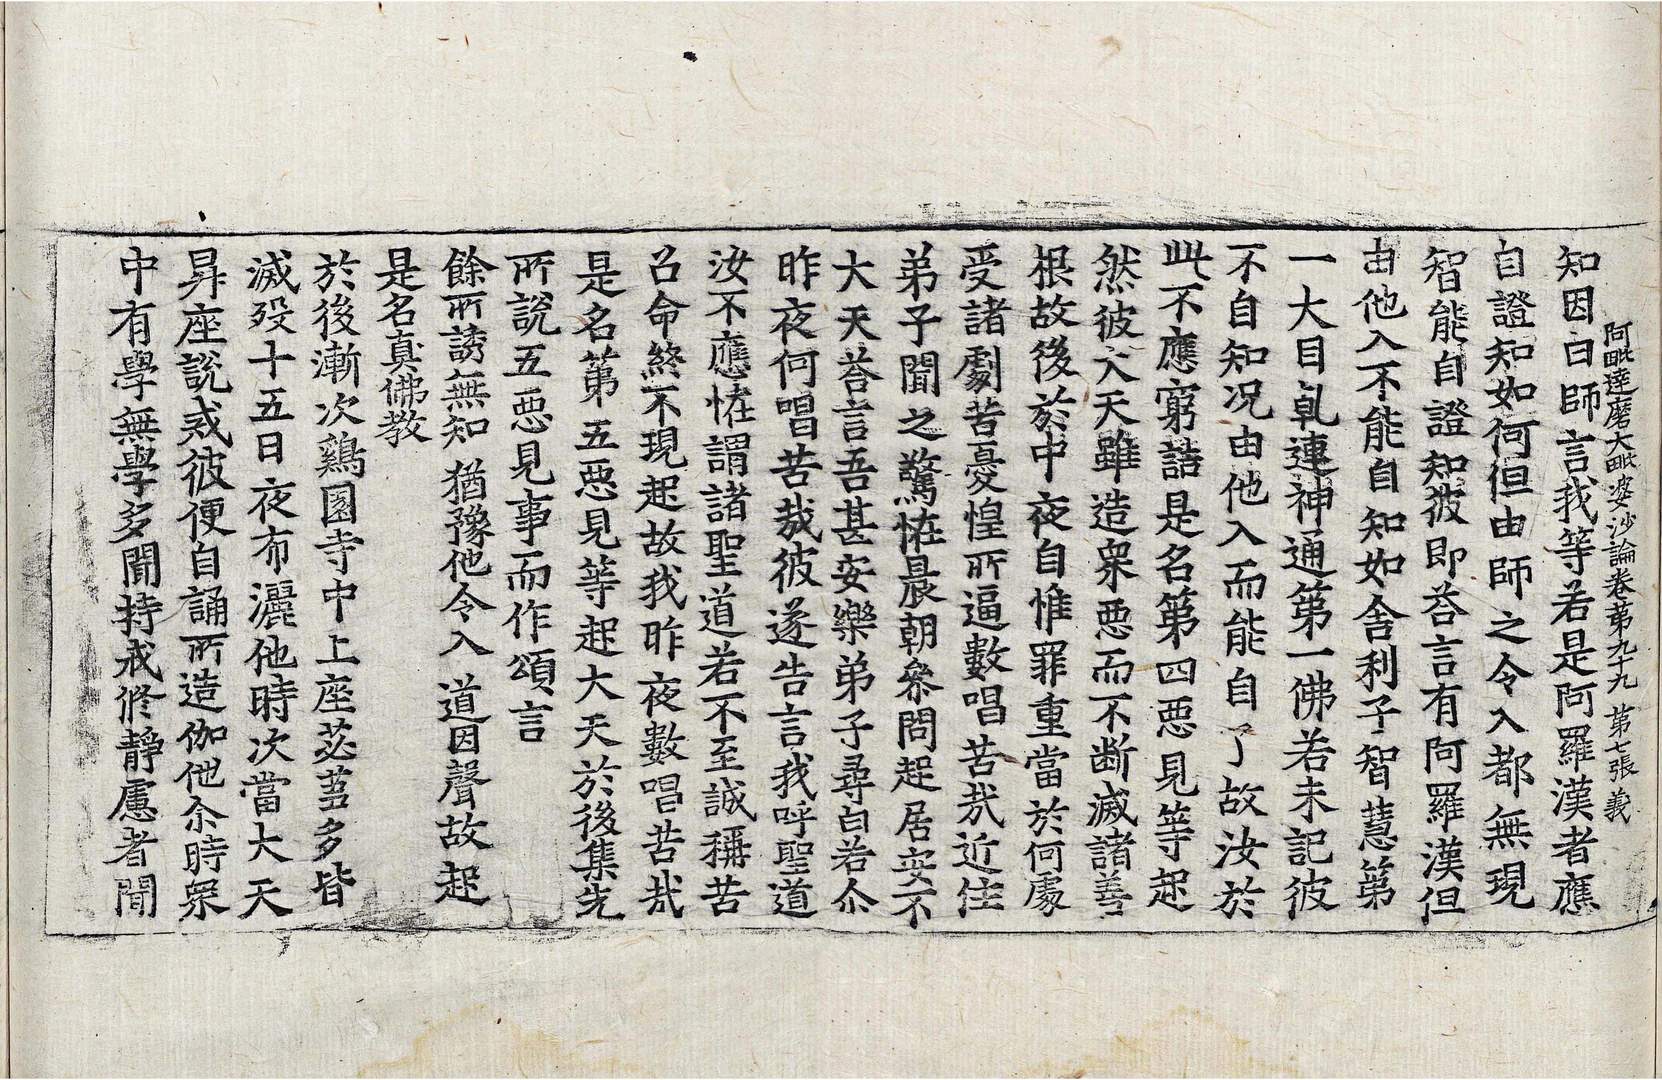 阿毗達磨大毗婆沙論卷第九十九 第七張 義
知因白師言我等若是阿羅漢者應
自證知如何但由師之令入都無現
智能自證知彼即荅言有阿羅漢但
由他入不能自知如舍利子智慧第
一大目乹連神通第一佛若未記彼
不自知况由他入而能自了故汝於
此不應窮詰是名第四惡見等起
然彼大天雖造衆惡而不斷滅諸善
根故後於中夜自惟罪重當於何處
受諸劇苦憂惶所逼數唱苦哉近住
弟子聞之驚恠晨朝叅問起居安不
大天荅言吾甚安樂弟子尋白若尒
昨夜何唱苦哉彼遂告言我呼聖道
汝不應恠謂諸聖道若不至誠稱苦
召命終不現起故我昨夜數唱苦哉
是名第五惡見等起大天於後集先
所說五惡見事而作頌言
餘所誘無知 猶豫他令入 道因聲故起
是名真佛教
於後漸次鷄園寺中上座苾蒭多皆
滅歿十五日夜布灑他時次當大天
昇座說戒彼便自誦所造伽他尒時衆
中有學無學多聞持戒修靜慮者聞